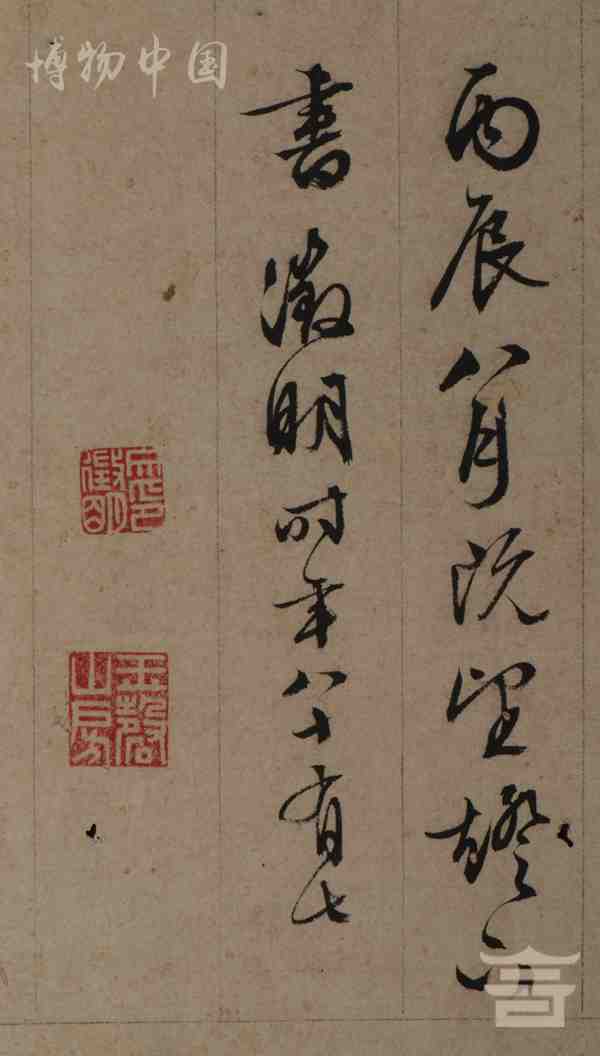 丙辰八月既望燈下
書徵明時年八十有七
徵明
玉磬山房
博物中国